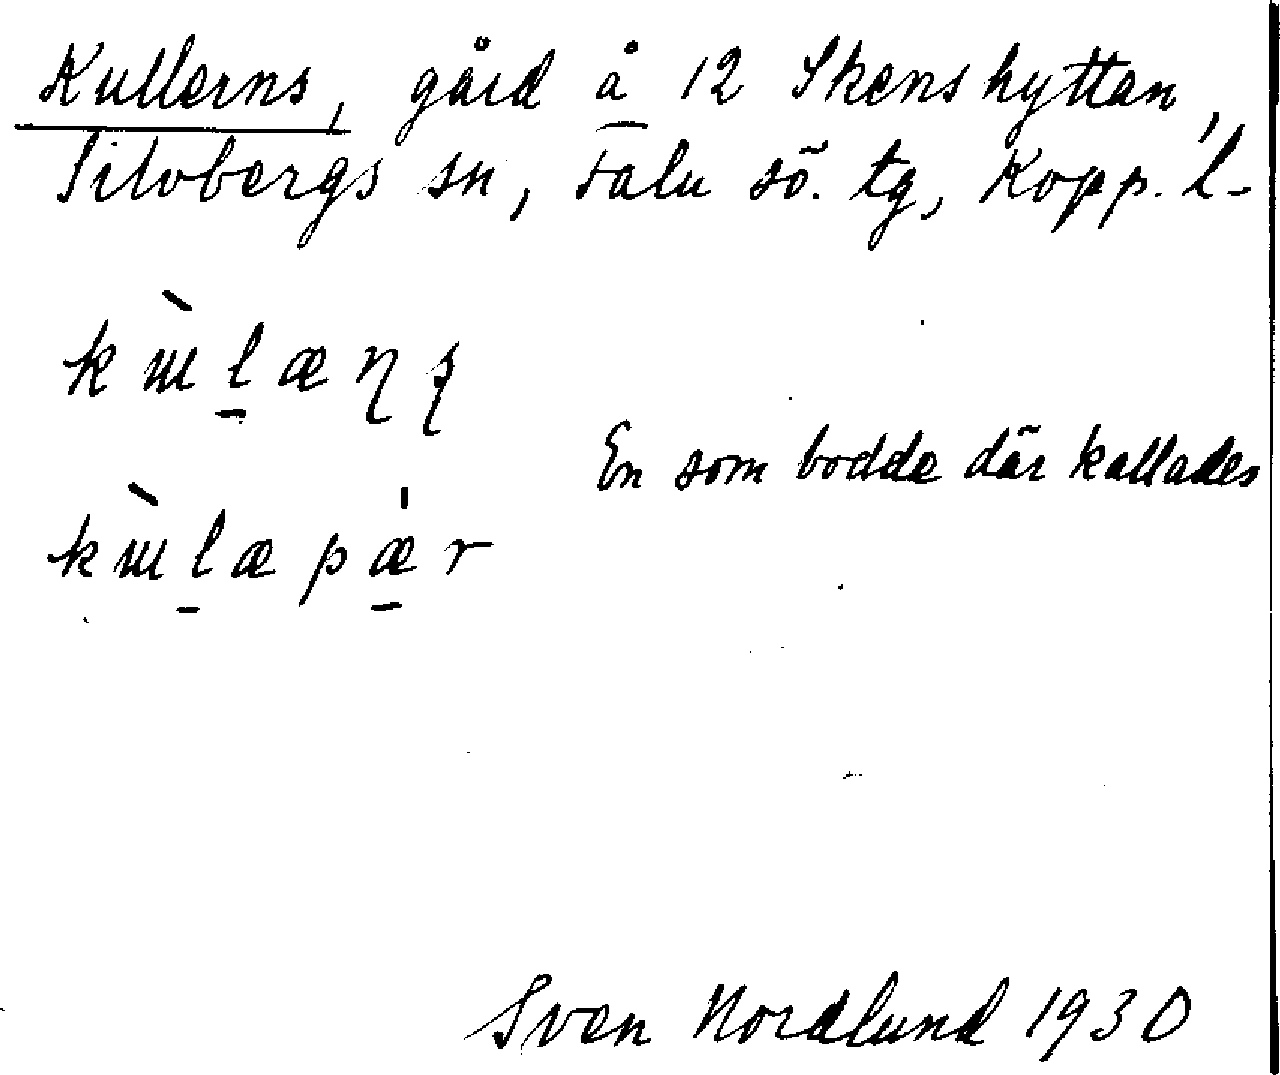 Kullerns, gård å 12 Skenshyttan,
Silvbergs sn, Falu sö. tg, Kopp. l.
kɯ̀l̠æɳʂ
En som bodde där kallades
kɯ̀l̠æpæ̠̍r
Sven Nordlund 1930